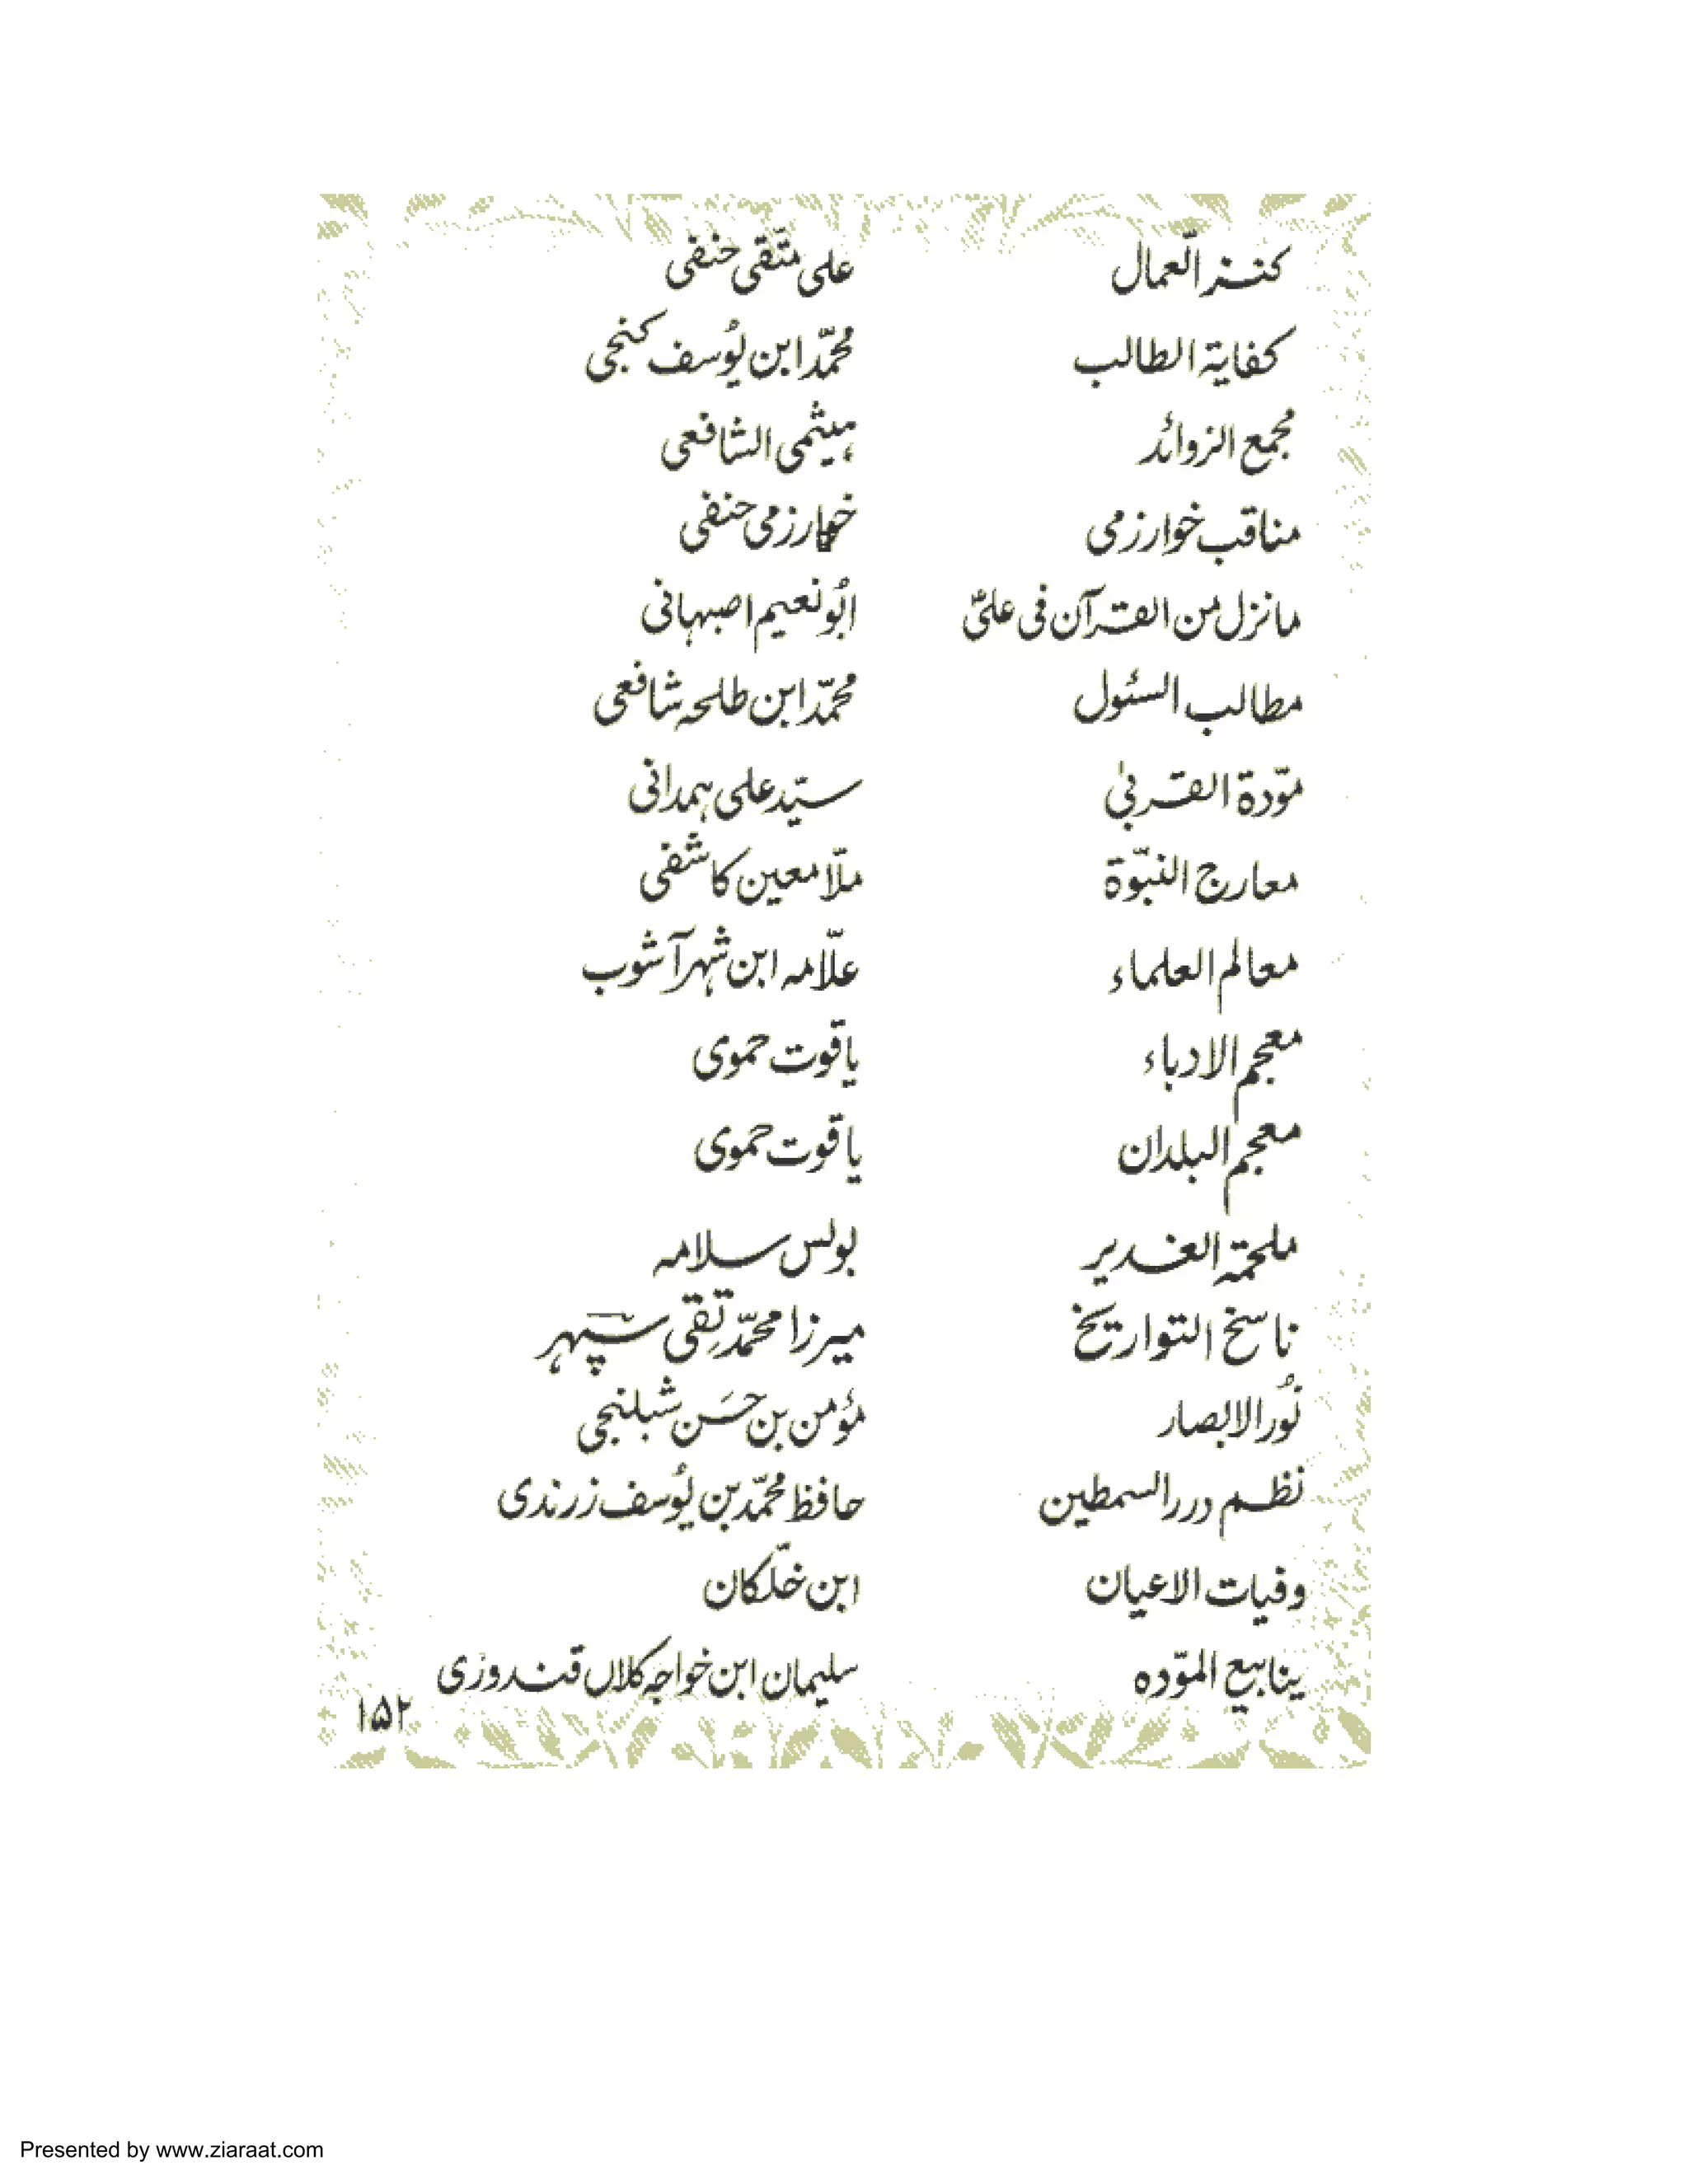 کنز العمّال علی متّقی حنفی
کفایۃ الطالب محمّد ابن یوُسف کنجی
مجمع الزوائد ہیثمی الشافعی
مناقب خوارزمی خوارزمی حنفی
مانزل من القرآن فی علیؑ ابُو نعیم اصبہانی
مطالب السئول محمّد ابن طلحہ شافعی
موّدۃ القربیٰ سیّد علی ہمدانی
معارج النبوّۃ ملّا معین کاشفی
معالم العلماء علّامہ ابن شہر آشوب
معجم الادباء یاقوت حموی
معجم البلدان یاقوت حموی
ملحمۃ الغدیر بولس سلامہ
ناسخ التواریخ میرزا محمّد تقی سپہر
نوُر الابصار مؤمن بن حسَن شبلنجی
نظم درر السمطین حافظ محمّد بن یوُسف زرندی
وفیات الاعیان ابن خلّکان
ینابیع الموّدہ سلیمان ابن خواجہ کلاں قندوزی
۱۵۲
Presented by www.ziaraat.com